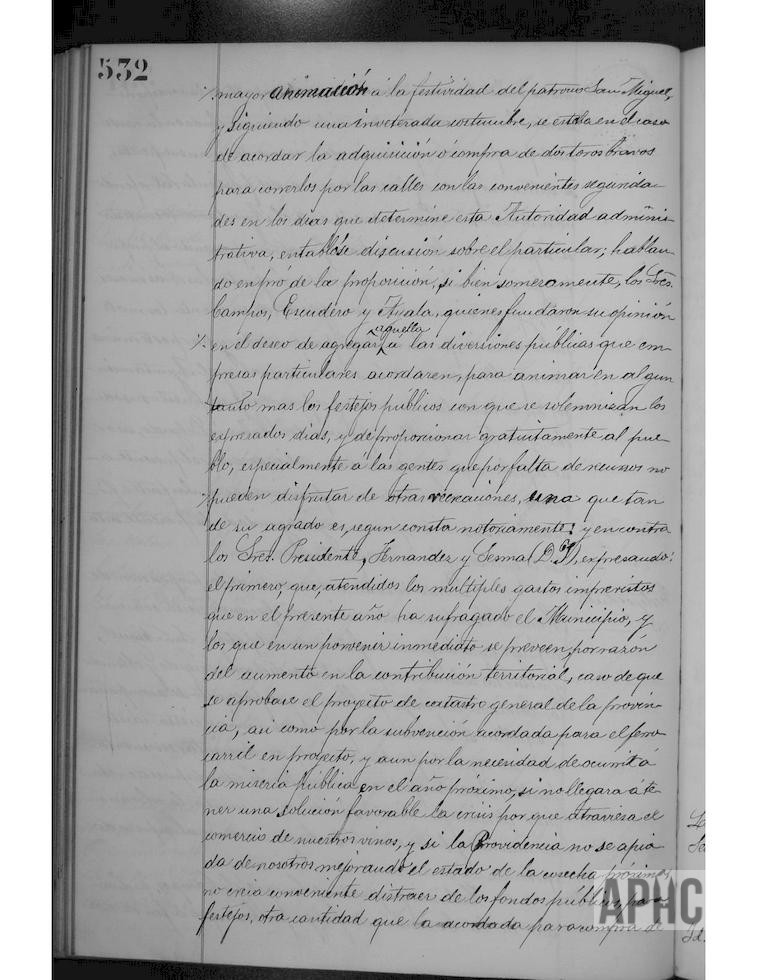 532
mayor animación á la festividad del patrono San Miguel,
y siguiendo una inveterada costumbre, se estaba en el caso
de acordar la adquisición ó compra de dos toros bravos
para correrlos por las calles con las convenientes segurida-
des en los dias que determine esta Autoridad adminis-
trativa, entablóse discusión sobre el particular; hablan-
do en pró de la proposición, si bien someramente, los Sres.
Campos, Escudero y Ayala, quienes fundaron su opinión
en el deseo de agregar aquella á las diversiones públicas que em-
presas particulares acordaren, para animar en algun
tanto mas los festejos públicos con que se solemnizan los
expresados dias, y de proporcionar gratuitamente al pue-
blo, especialmente á las gentes que por falta de recursos no
pueden disfrutar de otras recreaciones, una que tan
de su agrado es, segun consta notoriamente: y en contra
los Sres. Presidente, Fernandez y Sesma (D. ), expresando:
el primero, que, atendidos los multiples gastos imprevistos
que en el presente año ha sufragado el Municipio, y
los que en un porvenir inmediato se preveen, por razón
del aumento en la contribución territorial, caso de que
se aprobase el proyecto de catastro general de la provin-
cia, asi como por la subvención acordada para el ferro
carril en proyecto, y aun por la necesidad de ocurrir á
la miseria pública en el año próximo, si no llegara á te-
ner una solución favorable la crisis por que atraviesa el
comercio de nuestros vinos, y si la Providencia no se apia-
da de nosotros mejorando el estado de la cosecha próxima,
no creia conveniente distraer de los fondos públicos, para
festejos, otra cantidad que la acordada para compra de
APHC